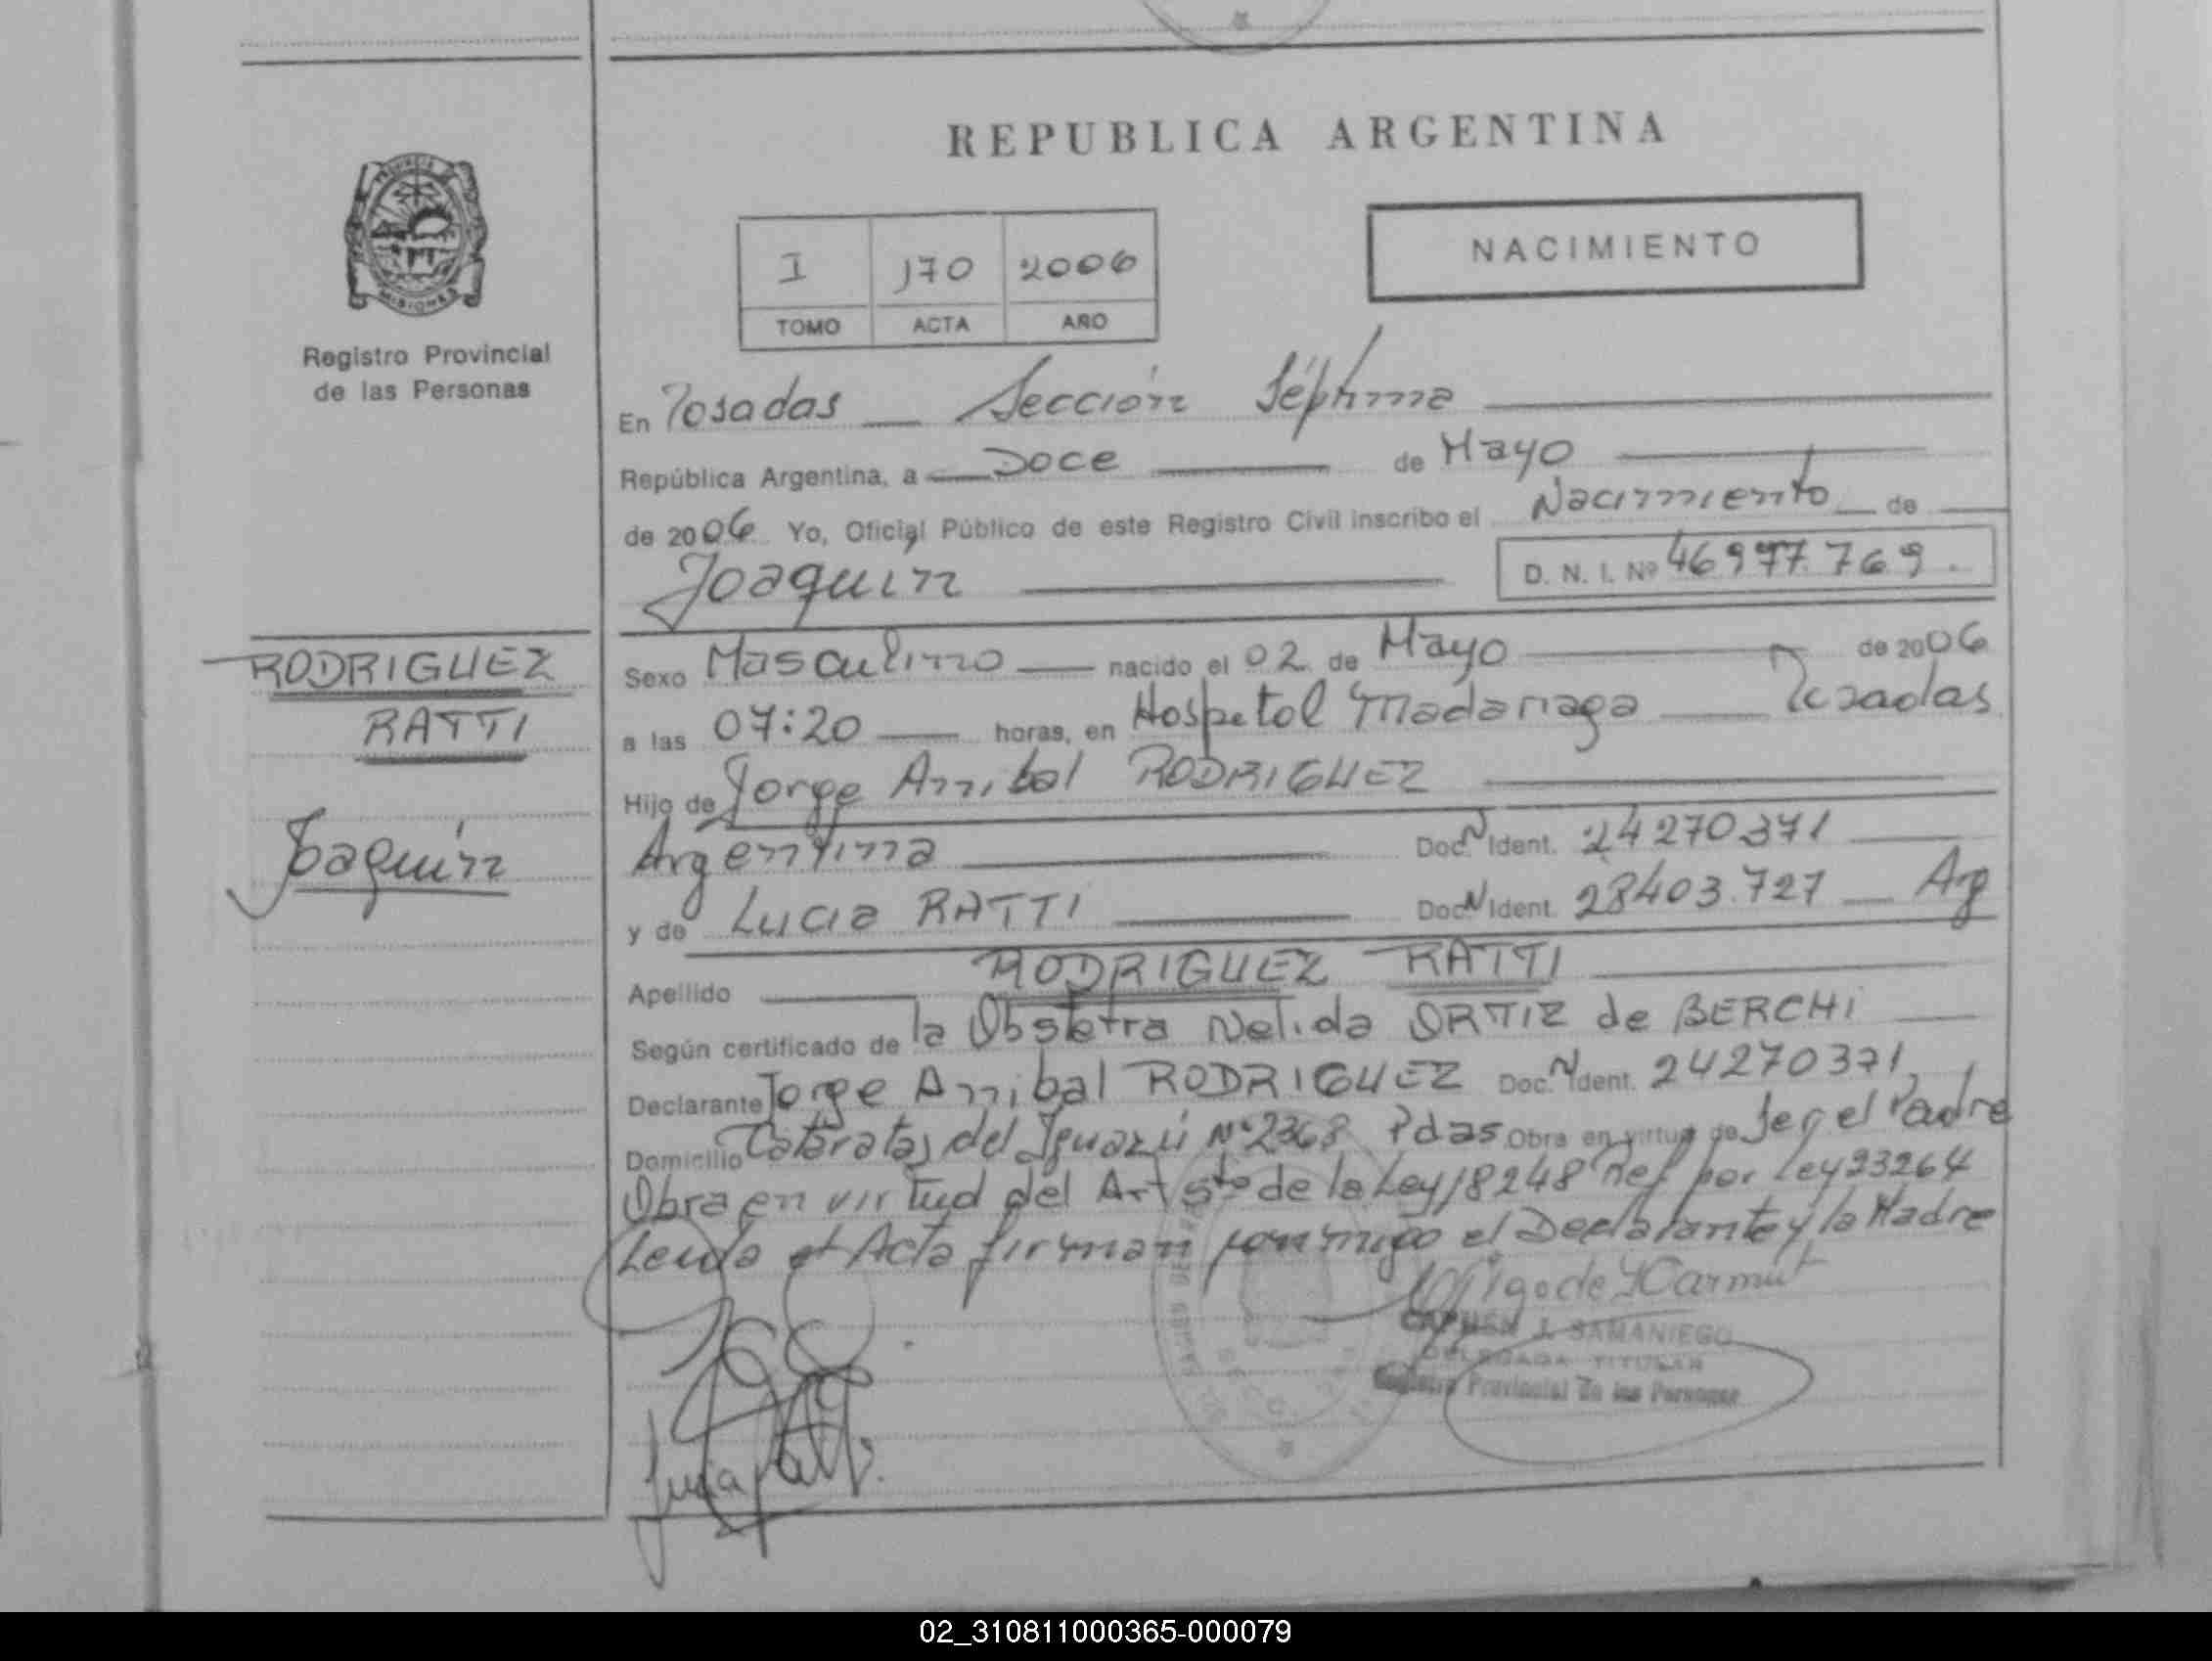 REPUBLICA ARGENTINA
PROVINCIA DE
MISIONES
Registro Provincial
de las Personas
I 170 2006
TOMO ACTA AÑO
NACIMIENTO
En Posadas Sección Séptima
República Argentina, a Doce de Mayo
de 2006 Yo, Oficial Público de este Registro Civil inscribo el Nacimiento de
Joaquin
D. N. I. Nº 46977.769.
RODRIGUEZ
RATTI
Joaquin
Sexo Masculino nacido el 02 de Mayo de 2006
a las 07:20 horas, en Hospital Madariaga Posadas
Hijo de Jorge Annibal RODRIGUEZ
Argentina Doc. N Ident. 24270371
y de Lucia RATTI Doc. N Ident. 28403.727 Arg
Apellido RODRIGUEZ RATTI
Según certificado de la Obstetra Nelida ORTIZ de BERCHI
Declarante Jorge Annibal RODRIGUEZ Doc. N Ident. 24270371,
Domicilio Cataratas del Iguazú Nº 2368 Pdas Obra en virtud de Ser el Padre
Obra en virtud del Art 5to de la Ley 18248 Ref por Ley 23264
Leida el Acta firman conmigo el Declarante y la Madre
CARMEN J. SAMANIEGO
DELEGADA TITULAR
Registro Provincial de las Personas
Lucia Ratti.
02_310811000365-000079